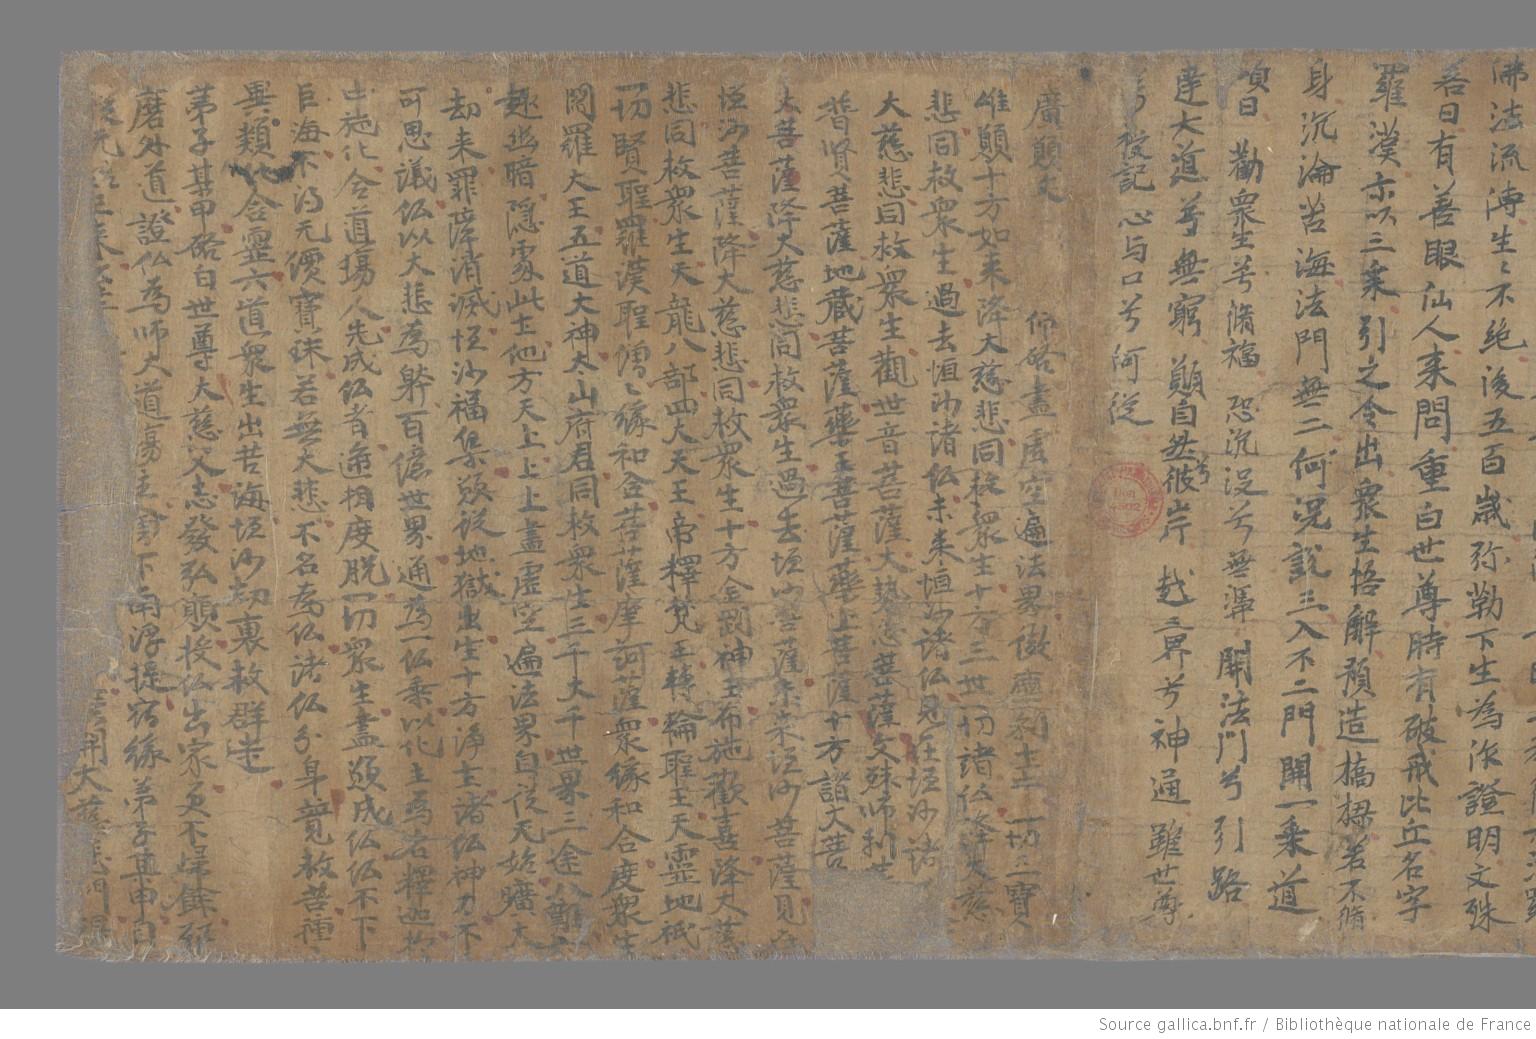 佛法流溥生〻不絕後五百歲弥勒下生為汝證明文殊
答曰有善眼仙人来問重白世尊時有破戒比丘名字
羅漢亦以三乘引之令出衆生悟解預造橋樑若不脩
身沉淪苦海法門無二何況說三入不二門開一乘道
頌曰 勸衆生兮脩福 恐沉没兮無 開法門兮引路
達大道兮無窮 願自然兮彼岸 越三界兮神通 雖世尊
兮授記 心与口兮何從
廣願文
仰啓盡虛空遍法界微塵剎土一切三寶
唯願十方如来降大慈悲同救衆生十方三世一切諸仏降大慈
悲同救衆生過去恒沙諸仏未来恒沙諸仏見在恒沙諸
大慈悲同救衆生觀世音菩薩大勢志菩薩文殊師利
普賢菩薩地藏菩薩藥王菩薩藥上菩薩十方諸大菩
大菩薩降大慈悲同救衆生過去恒沙菩薩未来恒沙菩薩見
恒沙菩薩降大慈悲同救衆生十方金剛神王布施歡喜降大慈
悲同救衆生天龍八部四大天王帝釋梵王轉輪聖王天靈地祇
一切賢聖羅漢聖僧〻緣和合菩薩摩訶薩衆緣和合度衆生
閻羅大王五道大神太山府君同救衆生三千大千世界三途八難
趣幽暗隱處此土他方天上上上盡虛空遍法界自從无始曠大
劫来罪障消滅恒沙福集願從地獄出生十方淨土諸仏神力不
可思議仏以大悲為躰百億世界通為一仏乘以化主為名釋迦
出施化令道場人先成仏者遞相度脫一切衆生盡願成仏仏不下
巨海不得无價寶珠若無大悲不名為仏諸仏分身說教菩種
異類含靈六道衆生出苦海恒沙劫裏救群迷
弟子某甲啓白世尊大慈父志發弘願投仏出家更不歸餘
磨外道證仏為師大道場主 下南浮提宿緣弟子某甲白
開大慈悲門
Source gallica.bnf.fr / Bibliothèque nationale de France